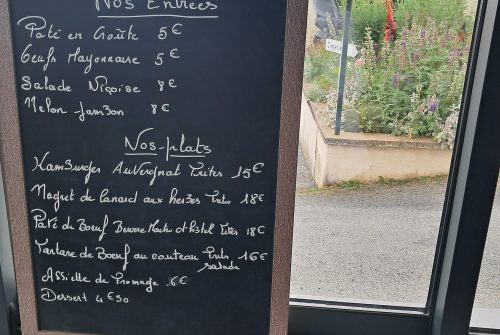 Nos Entrées
Paté en Croûte 5€
Oeufs Mayonnaise 5€
Salade Niçoise 8€
Melon Jambon 8€
Nos-plats
Hamburger Auvergnat Frites 15€
Magret de Canard aux herbes Frites 18€
Pavé de Boeuf Beurre Maitre d'hôtel Frites 18€
Tartare de Boeuf au couteau Frites 16€
salade
Assiette de Fromage 6€
Dessert 4€50